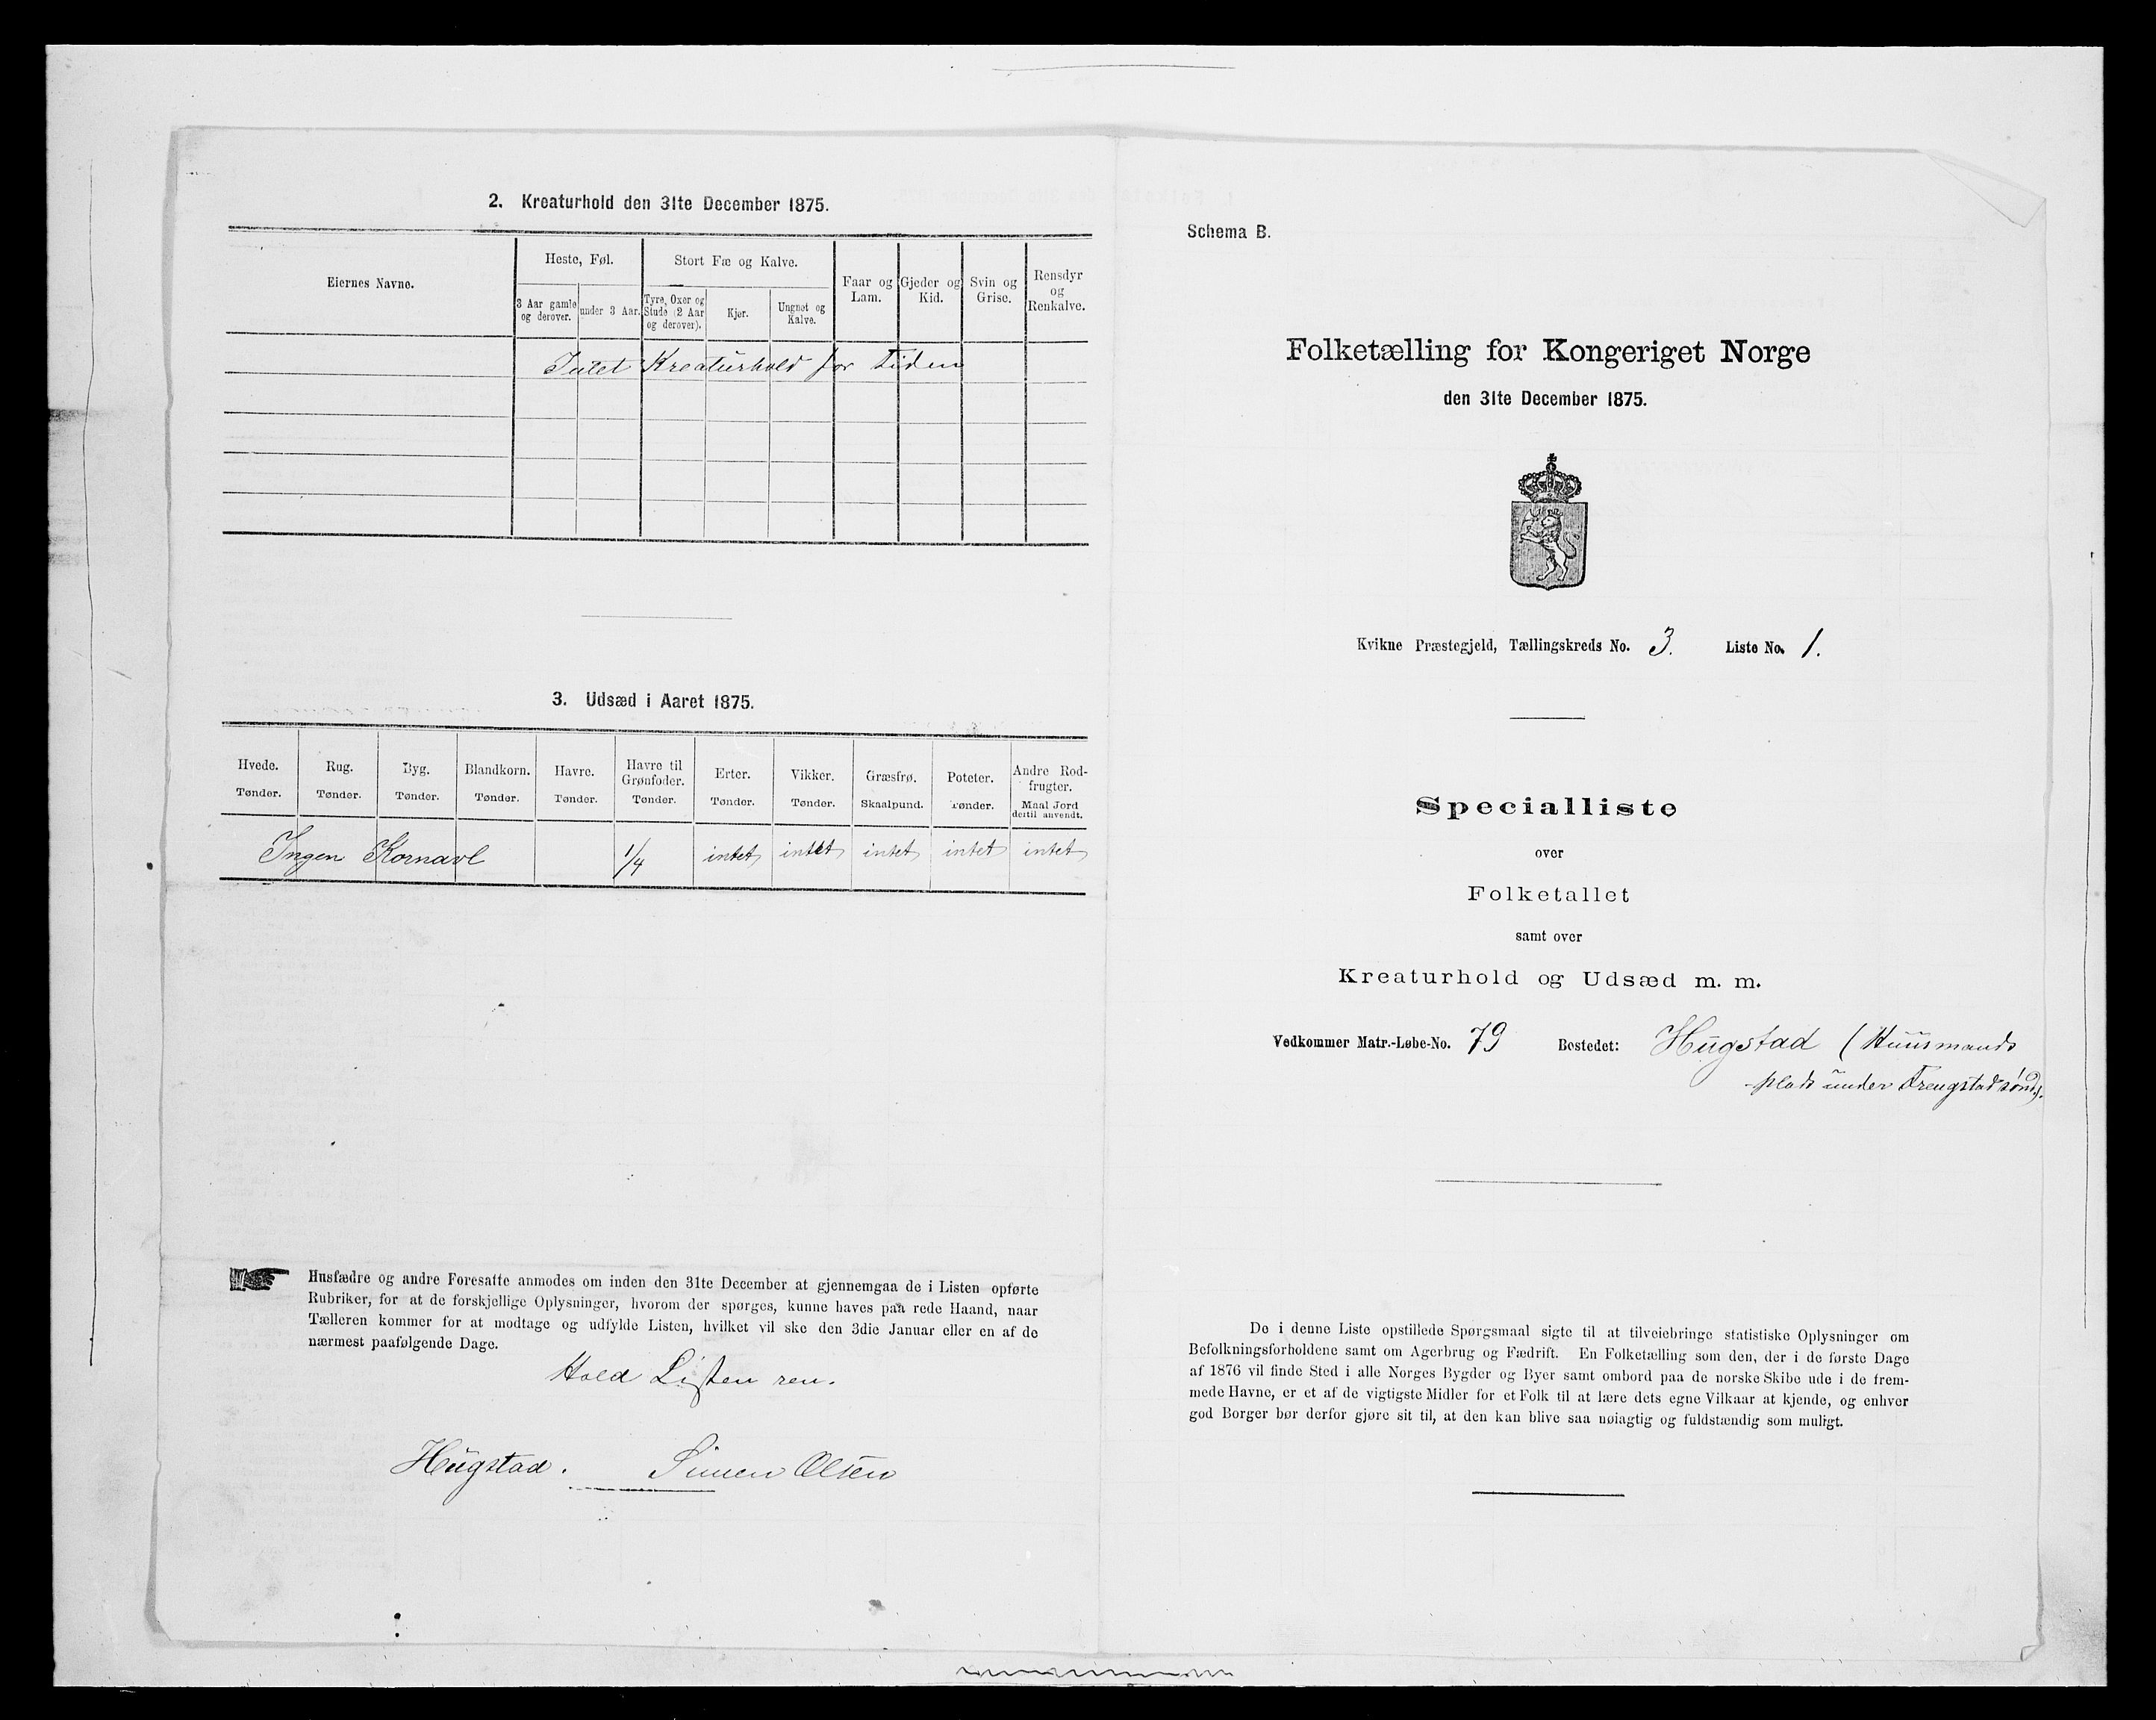 2. Kreaturhold den 31te December 1875.
Eiernes Navne.
Heste, Føl.
Stort Fæ og Kalve.
Faar og Lam.
Gjeder og Kid.
Svin og Grise.
Rensdyr og Renkalve.
3 Aar gamle og derover.
under 3 Aar.
Tyre, Oxer og Stude (2 Aar og derover).
Kjør.
Ungnøt og Kalve.
Intet Kreaturhold for tiden
3. Udsæd i Aaret 1875.
Hvede. Tønder.
Rug. Tønder.
Byg. Tønder.
Blandkorn. Tønder.
Havre. Tønder.
Havre til Grønfoder. Tønder.
Erter. Tønder.
Vikker. Tønder.
Græsfrø. Skaalpund.
Poteter. Tønder.
Andre Rodfrugter. Maal Jord dertil anvendt.
Ingen Kornavl 1/4 intet intet intet intet intet
Husfædre og andre Foresatte anmodes om inden den 31te December at gjennemgaa de i Listen opførte
Rubriker, for at de forskjellige Oplysninger, hvorom der spørges, kunne haves paa rede Haand, naar
Tælleren kommer for at modtage og udfylde Listen, hvilket vil ske den 3die Januar eller en af de
nærmest paafølgende Dage.
Hold Listen ren.
Hugstad. Simen Olsen
Schema B.
Folketælling for Kongeriget Norge
den 31te December 1875.
Kvikne Præstegjeld, Tællingskreds No. 3. Liste No. 1.
Specialliste
over
Folketallet
samt over
Kreaturhold og Udsæd m. m.
Vedkommer Matr.-Løbe-No. 79 Bostedet: Hugstad (Huusmands
plads under
De i denne Liste opstillede Spørgsmaal sigte til at tilveiebringe statistiske Oplysninger om
Befolkningsforholdene samt om Agerbrug og Fædrift. En Folketælling som den, der i de første Dage
af 1876 vil finde Sted i alle Norges Bygder og Byer samt ombord paa de norske Skibe ude i de frem-
mede Havne, er et af de vigtigste Midler for et Folk til at lære dets egne Vilkaar at kjende, og enhver
god Borger bør derfor gjøre sit til, at den kan blive saa nøiagtig og fuldstændig som muligt.